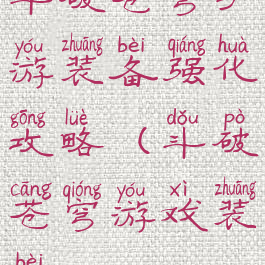 斗破苍穹手
yóu zhuāng bèi qiáng huà
游装备强化
gōng lüè dǒu pò
攻略（斗破
cāng qióng yóu xì zhuāng
苍穹游戏装
bèi